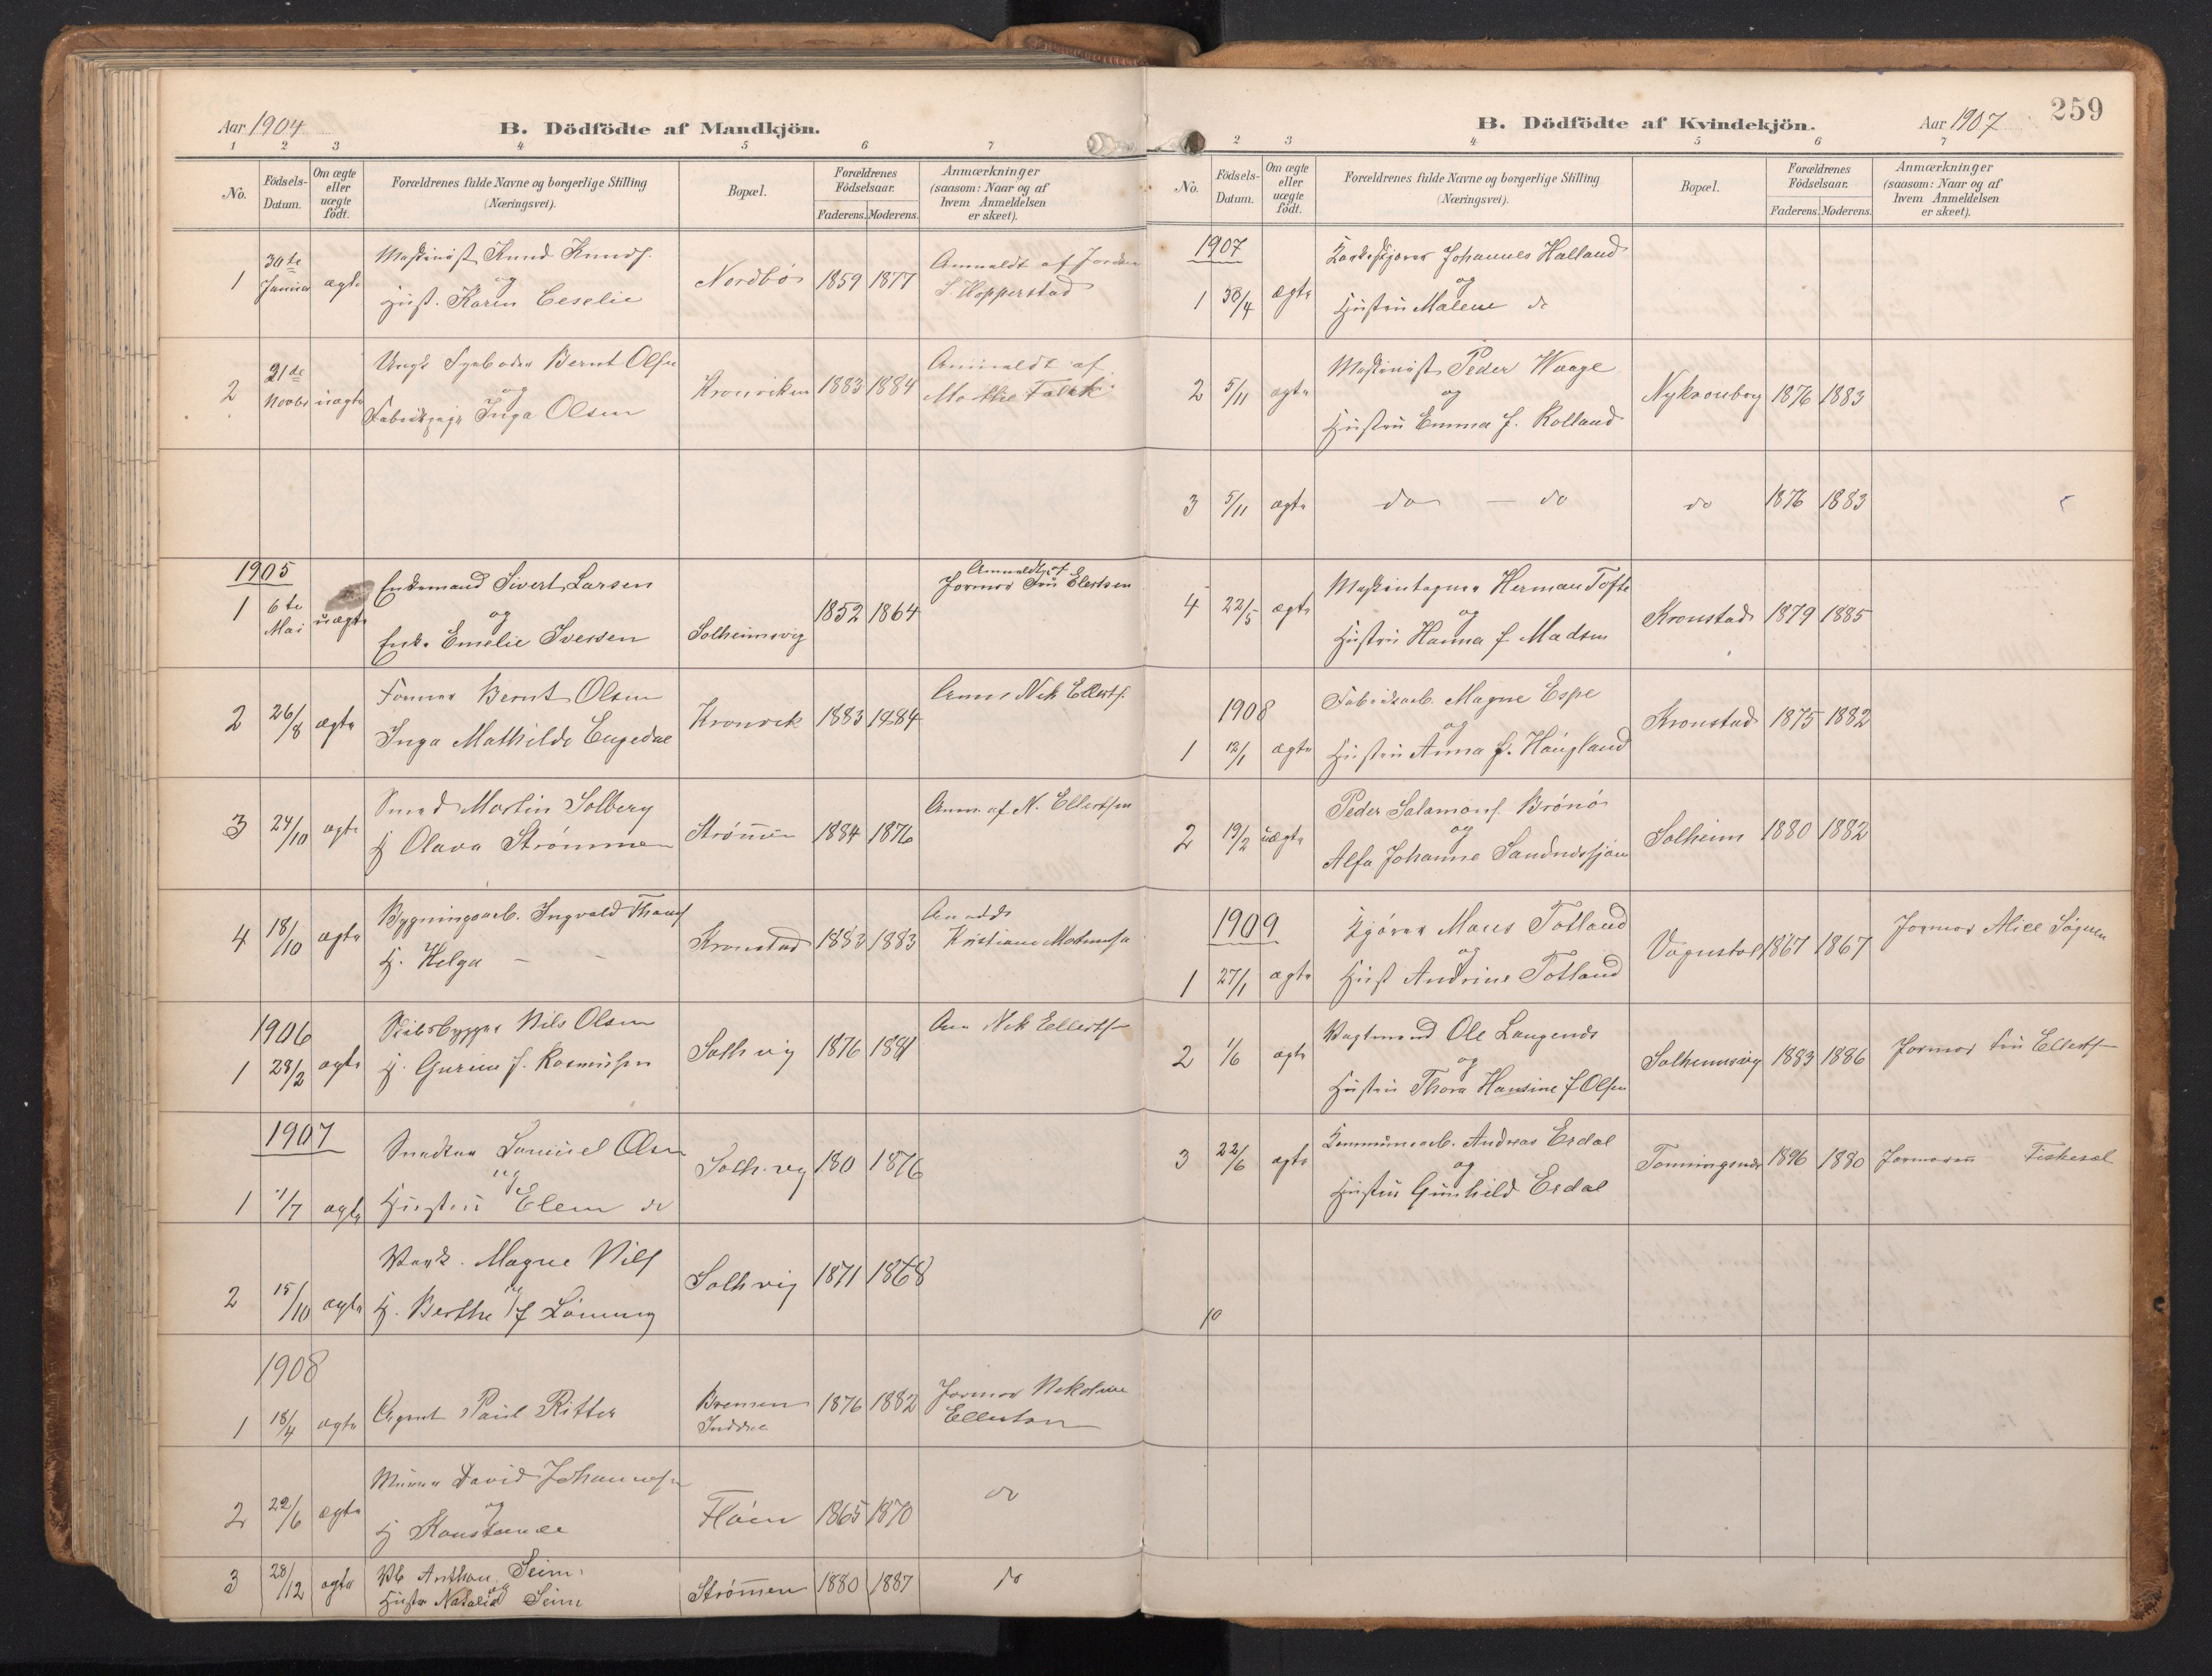 Aar 1904
B. Dödfödte af Mandkjön.
1 2 3 4 5 6 7
No.
Födsels-Datum.
Om ægte eller uægte födt.
Forældrenes fulde Navne og borgerlige Stilling (Næringsvei).
Bopæl.
Forældrenes Födselsaar.
Faderens. Moderens.
Anmærkninger (saasom: Naar og af hvem Anmeldelsen er skeet).
1 30te Januar ægte
Maskinist Knud Knuds.
og
Hust. Karen Ceselie
Nordbö 1859 1877
Anmeldt af Jordm
S Hopperstad
2 21de Novbr uægte
Ungk Bernt Olsen
og
Inga Olsen
Kronviken 1883 1884
Anmeldt af
Marthe Falck
1905
1 6te Mai uægte
Enkemand Sivert Larsen
og
Enke Emelie Iversen
Solheimsvig 1852 1864
Anmeldt af
Jormor Fru Elertsen
2 26/8 ægte
Former Bernt Olsen
Inga Mathilde Engedal
Kronvik 1883 1884
Anm. Nik Ellerts.
3 24/10 ægte
Smed Martin Solberg
H Olava Strömmen
Strömen 1884 1876
Anm. af N. Ellertsen
4 18/10 ægte
Bygningsarb. Ingvald
H. Helga — —
Kronstad 1883 1883
Kristiane
1906
1 28/2 ægte
Skibsbygger Nils Olsen
H. Gurine f. Rasmussen
Solh vig 1876 1881
Anm Nik Ellerts
1907
1 1/7 ægte
Samuel Olsen
og
Hustru Elen do
Solh. vig 180 1876
2 15/10 ægte
Magne Nils
og
H. Berthe f Löning
Solh vig 1871 1868
1908
1 18/4 ægte
Agent Paul Ritter
Bremen
Indre
1876 1882
Jormor Nikoline
Ellertsen
2 22/6 ægte
Murer David Johannesen
og
H Konstance
Flöen 1865 1870
do
3 28/12 ægte
Anthon Seim
og
Hustr Natalia Seim
Strömen 1880 1887
do
B. Dödfödte af Kvindekjön.
Aar 1907
259
2 3 4 5 6 7
No.
Födsels-Datum.
Om ægte eller uægte födt.
Forældrenes fulde Navne og borgerlige Stilling (Næringsvei).
Bopæl.
Forældrenes Födselsaar.
Faderens. Moderens.
Anmærkninger (saasom: Naar og af hvem Anmeldelsen er skeet).
1907
1 30/4 ægte
Johannes Halland
og
Hustru Malene do
2 5/11 ægte
Maskinist Peder Waage
og
Hustru Emma f. Rolland
Nykronborg 1876 1883
3 5/11 ægte
do — do
do 1876 1883
4 22/5 ægte
Herman Tofte
og
Hustru Hanna f Madsen
Kronstad 1879 1885
1908
1 12/1 ægte
Fabrikarb. Magne Espe
og
Hustru Anna f. Haugland
Kronstad 1875 1882
2 19/2 uægte
Peder Salamons. Brönö
og
Alfa Johanne Sandnessjöen
Solheim 1880 1882
1909
1 27/1 ægte
Kjörer Mons Totland
og
Hust Andrine Totland
1867 1867
Jormor Alice
2 1/6 ægte
Vagtmand Ole Langenes
og
Hustru Thora Hansine f Olsen
Solheimsvig 1883 1886
Jormor fru Ellerts
3 22/6 ægte
Kommunearb. Andreas Erdal
og
Hustru Gunhild Erdal
1896 1880
Fiskesæl
10